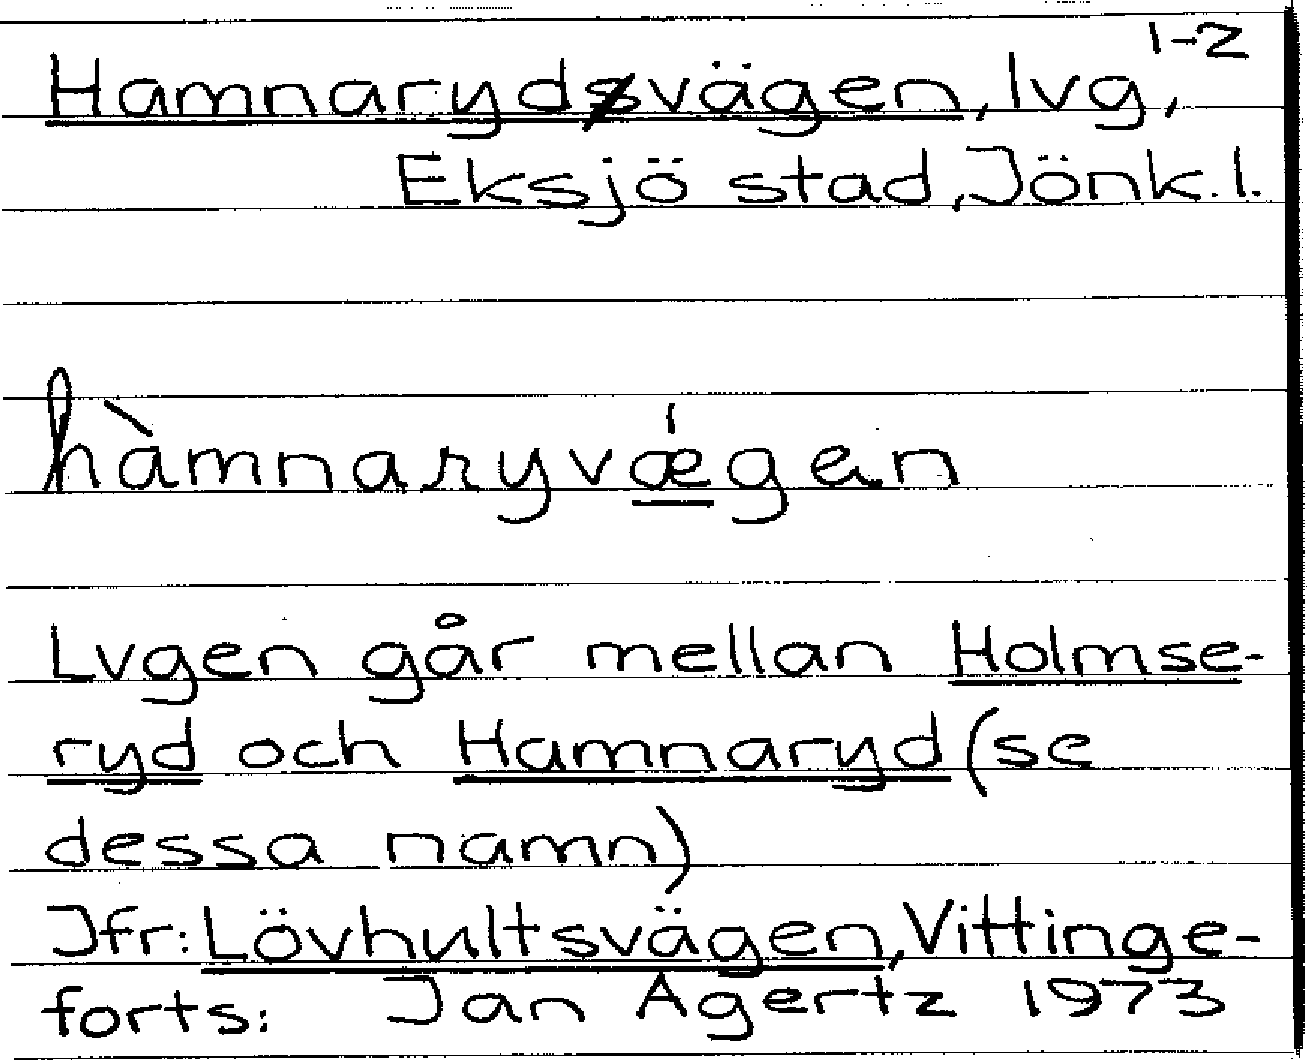 Hamnarydsvägen, lvg, 1-2
Eksjö stad, Jönk. l.
hàmnaryvǽgen
Lvgen går mellan Holmse-
ryd och Hamnaryd (se
dessa namn)
Jfr: Lövhultsvägen, Vittinge-
forts: Jan Agertz 1973